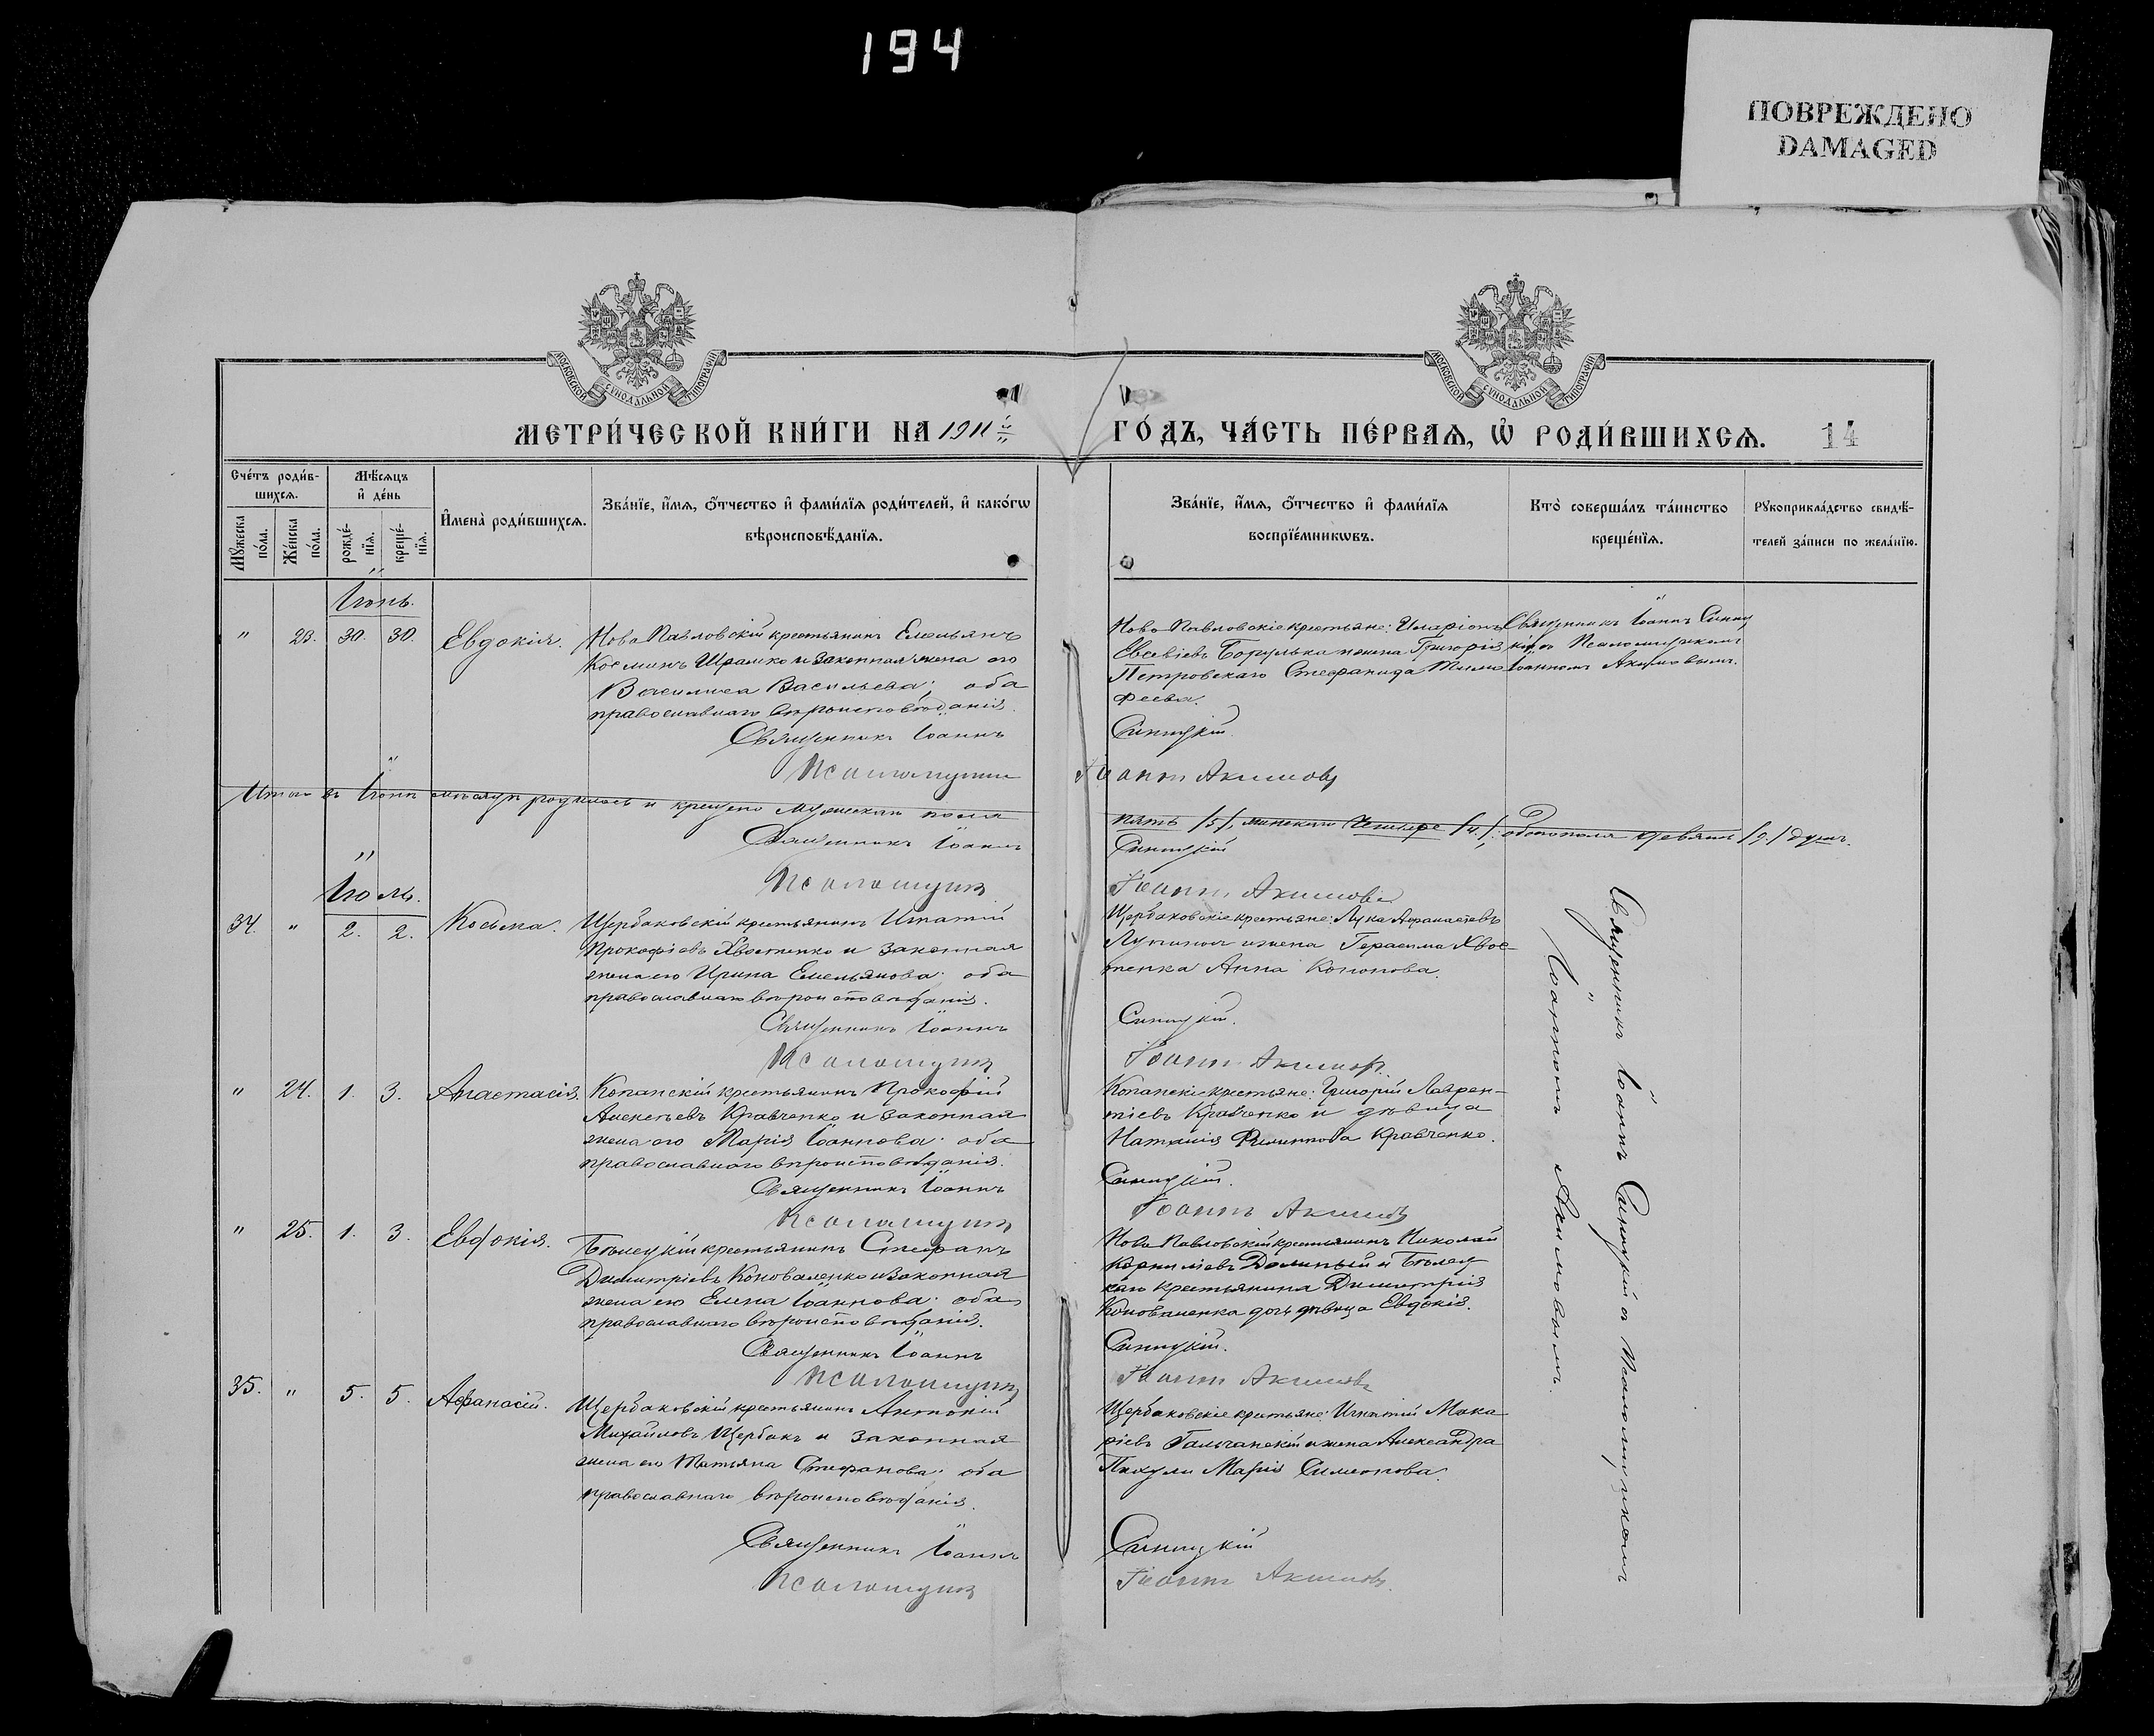 194
ПОВРЕЖДЕНО
DAMAGED
МОСКОВСКОЙ СУНОДАЛЬНОЙ ТИПОГРАФІИ
МОСКОВСКОЙ СУНОДАЛЬНОЙ ТИПОГРАФІИ
МЕТРИ́ЧЕСКОЙ КНИ́ГИ НА 1911й
ГО́ДЪ, ЧА́СТЬ ПЕ́РВАѦ, Ѡ҆ РОДИ́ВШИХСѦ. 14
Сче́тъ роди́в-
шихсѧ.
Мꙋ́жеска по́ла.
Же́нска по́ла.
Мѣ́сѧцъ
и҆ де́нь
рожде́-
нїѧ.
креще́-
нїѧ.
И҆мена̀ роди́вшихсѧ.
Зва́нїе, и҆́мѧ, ѻ҆́тчество и҆ фами́лїѧ роди́телей, и҆ како́гѡ
вѣроисповѣ́данїѧ.
Зва́нїе, и҆́мѧ, ѻ҆́тчество и҆ фами́лїѧ
воспрїе́мникѡвъ.
Кто̀ соверша́лъ та́инство
креще́нїѧ.
Рꙋкоприкла́дство свидѣ́-
телей за́писи по жела́нїю.
Іюнь.
" 23. 30. 30. Евдокія.
Ново Павловскій крестьянинъ Емельянъ
Косминъ Шрамко и законная жена его
Василиса Васильева; оба
православнаго вѣроисповѣданія.
Священникъ Іоаннъ
Псаломщикъ
Ново Павловскіе крестьяне: Иларіонъ
Евсевіевъ Борулька и жена Григорія
Петровскаго Стефанида Тимо
феева.
Синицкій
Іоаннъ Акимовъ
Священникъ Іоаннъ Синиц
кій съ Псаломщикомъ
Іоанномъ Акимовымъ.
Итого въ Іюнѣ мѣсяцѣ родилось и крещено мужескаго пола
пять /5/, женскаго четыре /4/, обоего пола девять /9/ душъ.
Священникъ Іоаннъ
Синицкій
Псаломщикъ
Іоаннъ Акимовъ
Іюль.
34. " 2. 2. Косьма.
Щербаковскій крестьянинъ Игнатій
Прокофіевъ Хвостенко и законная
жена его Ирина Емельянова; оба
православнаго вѣроисповѣданія.
Священникъ Іоаннъ
Псаломщикъ
Щербаковскіе крестьяне: Лука Афанасіевъ
и жена Герасима Хвос-
тенка Анна Кононова.
Синицкій.
Іоаннъ Акимовъ.
" 24. 1. 3. Анастасія.
Копанскій крестьянинъ Прокофій
Алексѣевъ Кравченко и законная
жена его Марія Іоаннова; оба
православнаго вѣроисповѣданія.
Священникъ Іоаннъ
Псаломщикъ
Копанскіе крестьяне: Григорій Лаврен-
тіевъ Кравченко и дѣвица
Наталія Филиппова Кравченко.
Синицкій.
Іоаннъ Акимовъ
" 25. 1. 3. Евдокія.
крестьянинъ Стефанъ
Димитріевъ Коноваленко и законная
жена его Елена Іоаннова; оба
православнаго вѣроисповѣданія.
Священникъ Іоаннъ
Псаломщикъ
Ново Павловскій крестьянинъ Николай
Корниліевъ и
каго крестьянина Димитрія
Коноваленка дочь дѣвица Евдокія.
Синицкій.
Іоаннъ Акимовъ
35. " 5. 5. Афанасій.
Щербаковскій крестьянинъ Антоній
Михайловъ Щербакъ и законная
жена его Татьяна Стефанова; оба
православнаго вѣроисповѣданія.
Священникъ Іоаннъ
Псаломщикъ
Щербаковскіе крестьяне: Игнатій Мака
ріевъ и жена Александра
Марія Симеонова.
Синицкій
Іоаннъ Акимовъ.
Священникъ Іоаннъ Синицкій съ Псаломщикомъ
Іоанномъ Акимовымъ.